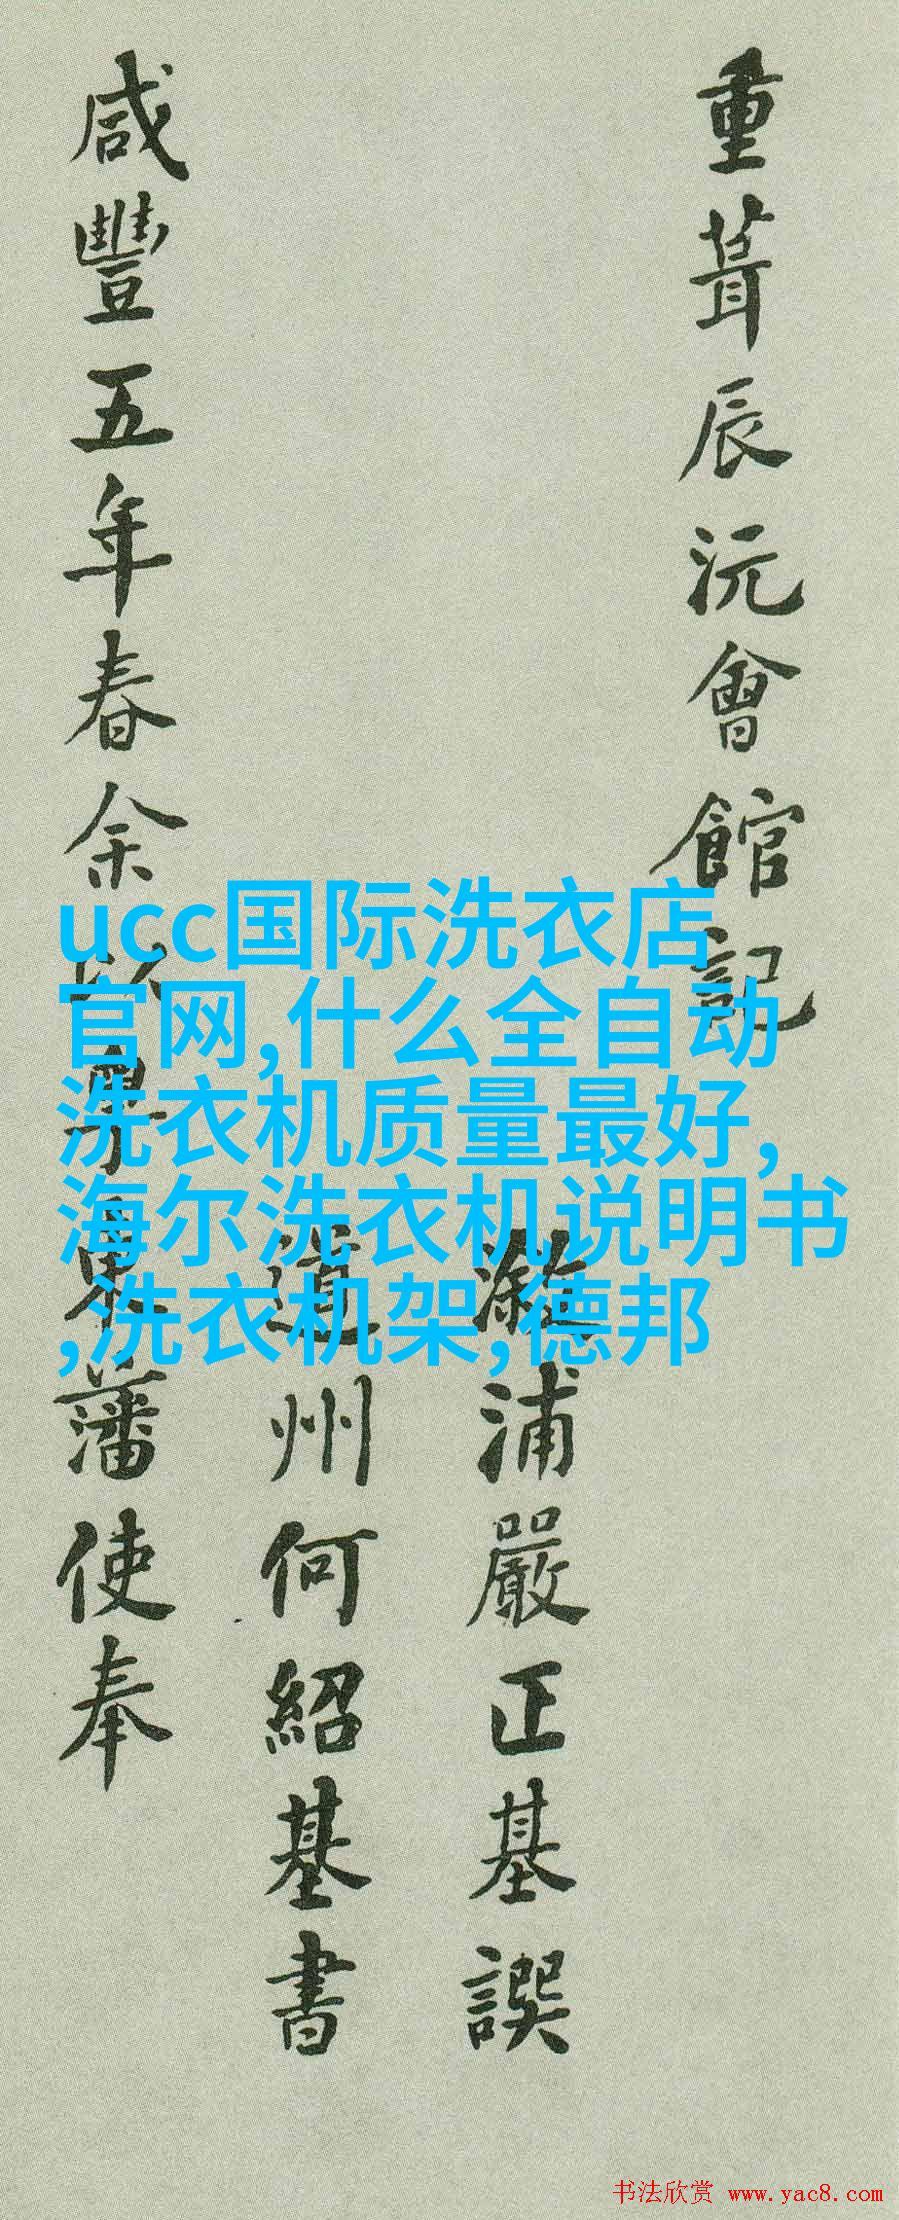 重葺辰沅會館記
溆浦嚴正基譔
道州何紹基書
咸豐五年春余以粵東藩使奉
ucc国际洗衣店
官网,什么全自动
洗衣机质量最好,
海尔洗衣机说明书
,洗衣机架,德邦
书法欣赏 www.yac8.com